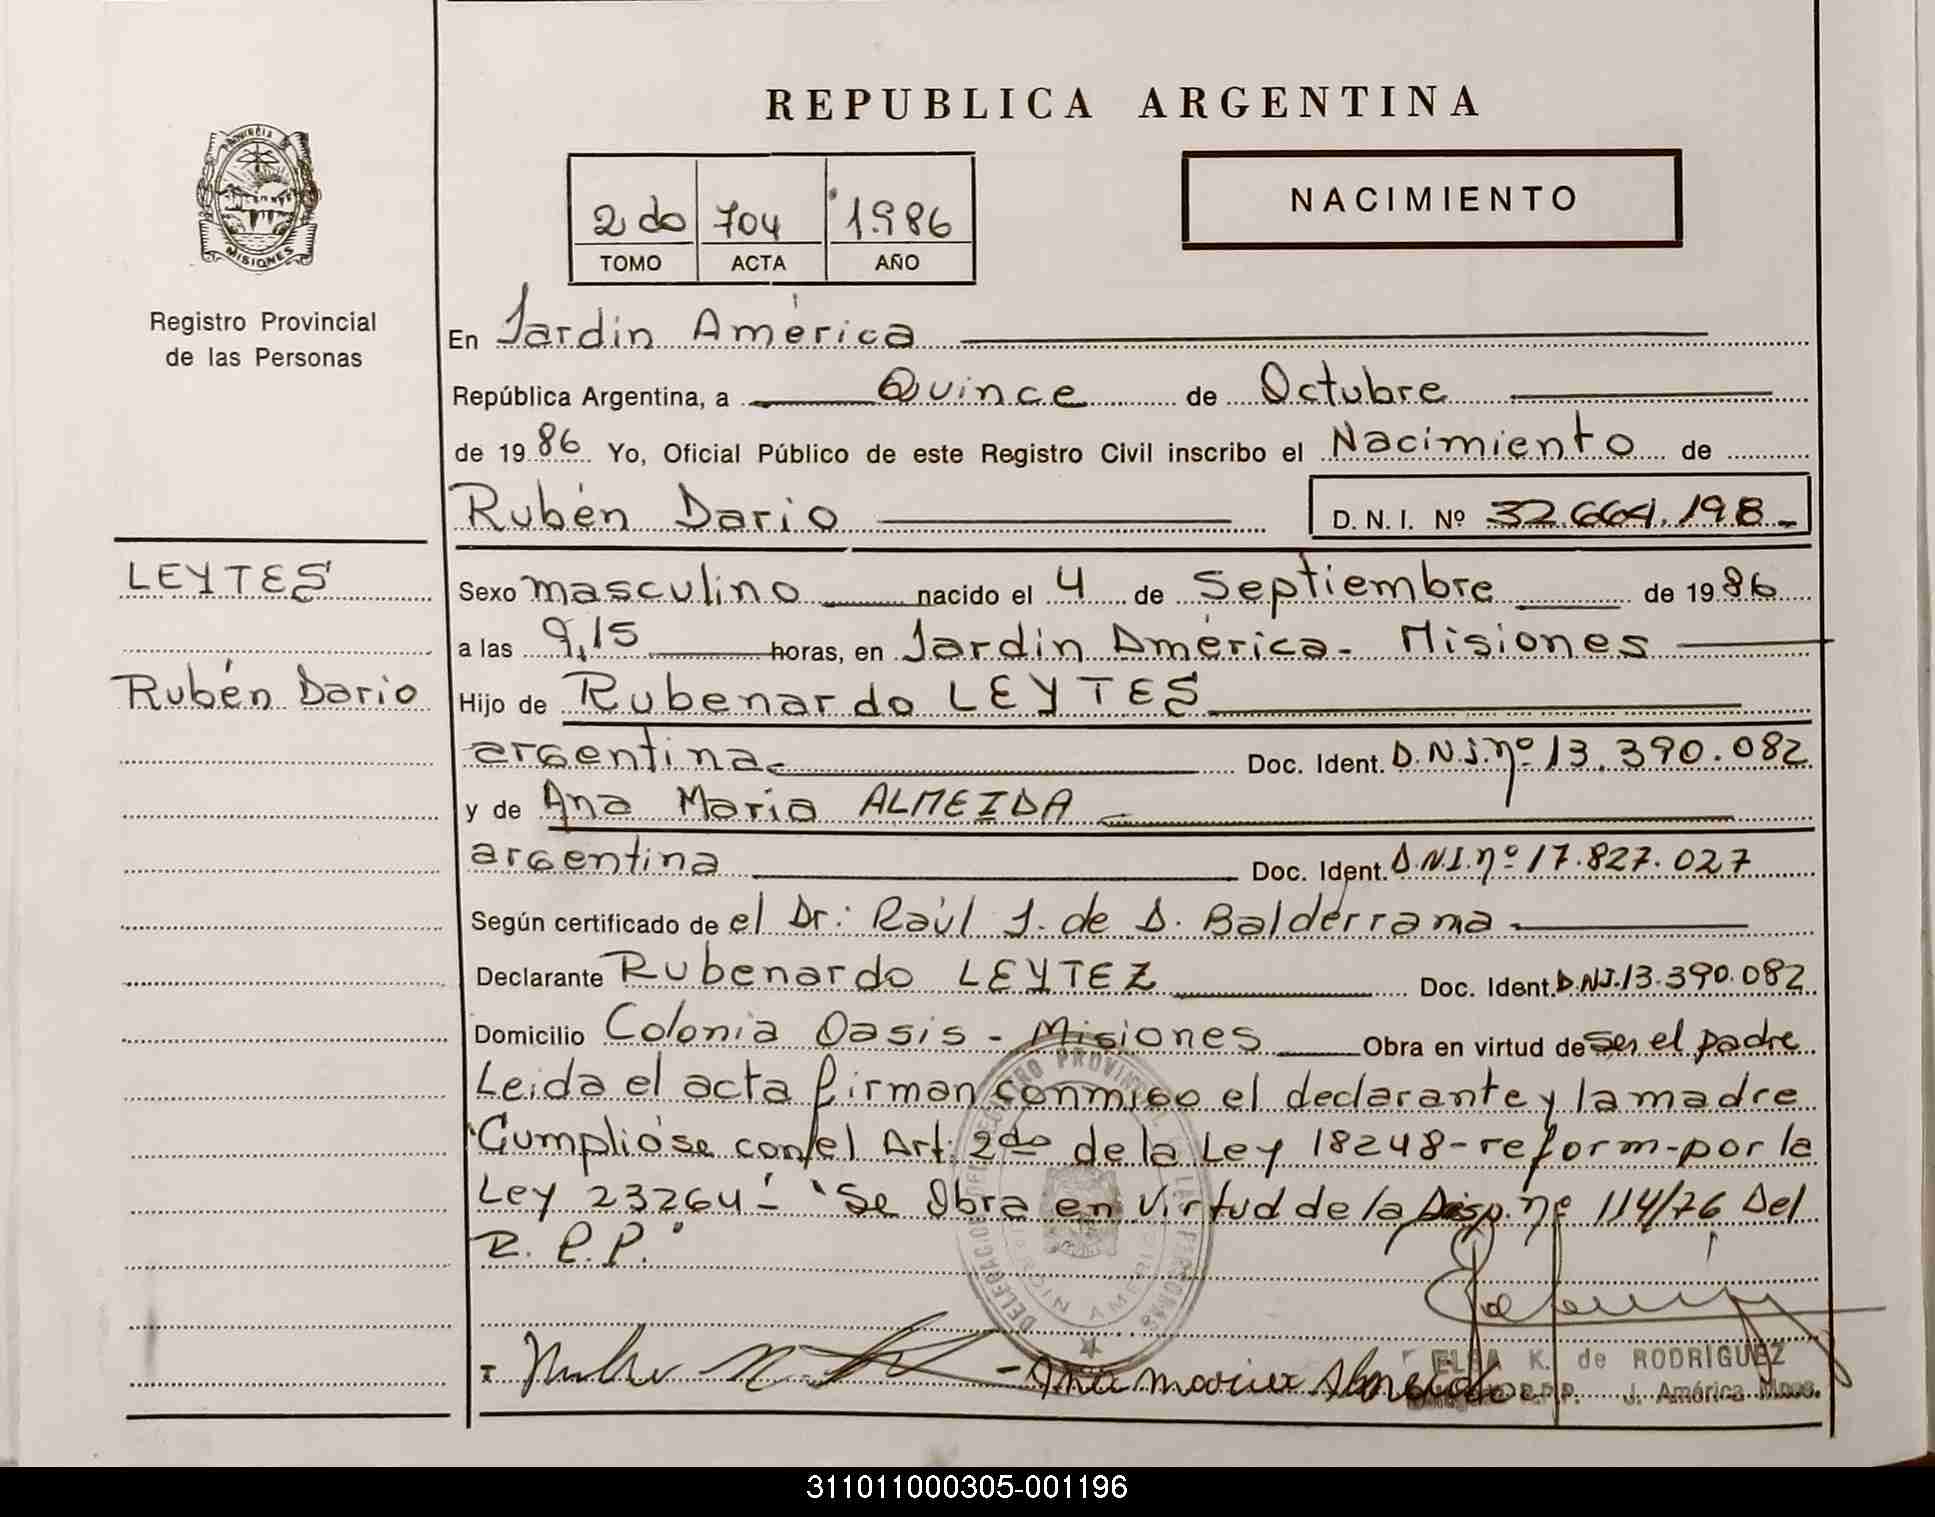 REPUBLICA ARGENTINA
PROVINCIA DE
MISIONES
Registro Provincial
de las Personas
2do 704 1986
TOMO ACTA AÑO
NACIMIENTO
En Jardín América
República Argentina, a Quince de Octubre
de 1986 Yo, Oficial Público de este Registro Civil inscribo el Nacimiento de
Rubén Dario D. N. I. Nº 32.664.198.-
LEYTES
Rubén Dario
Sexo masculino nacido el 4 de Septiembre de 1986
a las 9,15 horas, en Jardín América- Misiones
Hijo de Rubenardo LEYTES
argentina Doc. Ident. D.N.I.nº 13.390.082
y de Ana Maria ALMEIDA
argentina Doc. Ident. D.N.I.nº 17.827.027
Según certificado de el Dr: Raúl J. de D. Balderrama
Declarante Rubenardo LEYTEZ Doc. Ident. D.N.I. 13.390.082
Domicilio Colonia Oasis - Misiones Obra en virtud de ser el padre
Leida el acta firman conmigo el declarante y la madre
"Cumplióse con el Art: 2do de la Ley 18248-reform-por la
Ley 23264'- "Se Obra en virtud de la Disp. nº 114/76 Del
R. P. P."
DELEGACION DEL REGISTRO PROVINCIAL DE LAS PERSONAS
JARDIN AMERICA
Ana maria Almeida
ELSA K. de RODRIGUEZ
R.P.P. J. América Mnes.
311011000305-001196